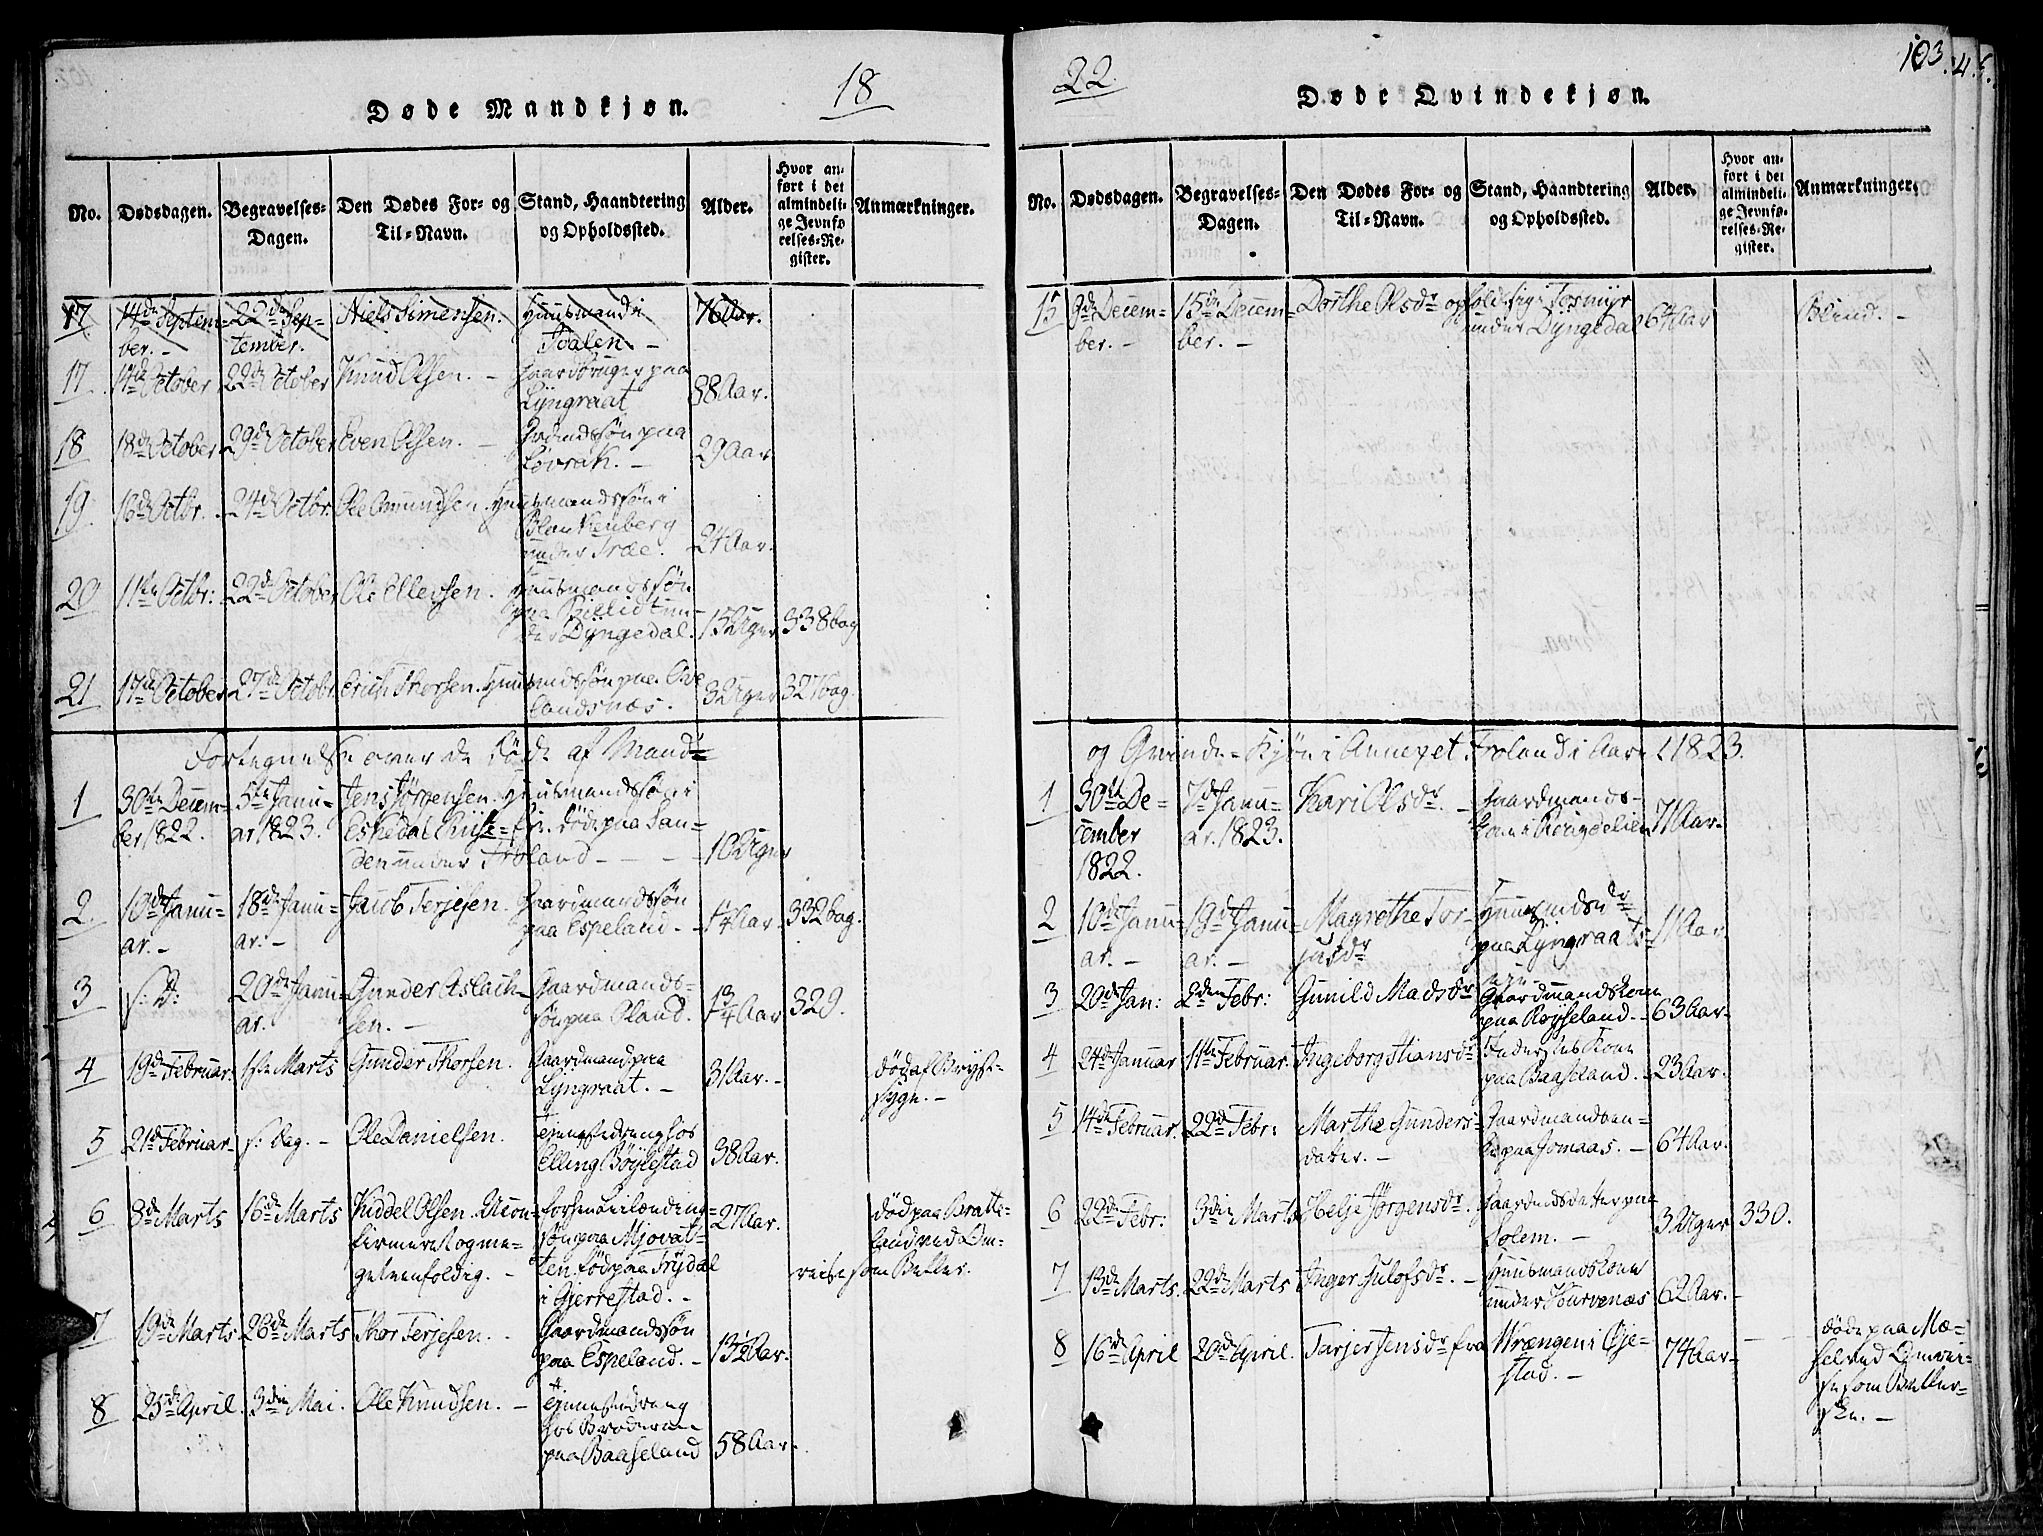 18
Døde Mandkjøn.
No.
Dødsdagen.
Begravelses-Dagen.
Den Dødes For- og Til-Navn.
Stand, Haandtering og Opholdssted.
Alder.
Hvor anført i det almindelige Jevnførelses-Register.
Anmærkninger.
17 14de September. 22de September. Niels Simensen. Huusmand i Dalen 76 Aar.
17 14de October 22de October Knud Olsen. Gaardbruger paa Lyngraat 38 Aar.
18 18de October 29de October Even Olsen. søn paa Løvrak. 29 Aar
19 16de Octbr. 24de Octbr. Ole Omundsen. Huusmandssøn i Blankenberg under Træe. 24 Aar.
20 11te Octbr: 22de October Ole Ellevsen. Huusmandssøn paa under Dyngedal. 15 Uger 338 bag
21 17de October 27de Octobr. Erich Thorsen. Huusmdssøn paa landsnæs. 3 Uger 327 bag.
Fortegnelse over de Døde af Mand=
1 30te December 1822. 5te Januar 1823. Jens Jørgensen. Huusmandssøn i Eskedal døde paa Sanden under Froland 10 Uger
2. 10de Januar. 18de Januar. Jacob Terjesen. Gaardmandssøn paa Espeland 1/4 Aar 332 bag.
3 s: D: 20de Januar. Gunder Aslachsen. Gaardmandssøn paa Oland. 13/4 Aar 329.
4 19de Februar. 1ste Marts Gunder Thorsen. Gaardmand paa Lyngraat. 31 Aar. død af Brystsyge.
5 21de Februar s: Dag. Ole Danielsen. hos Elling Bøylestad 38 Aar.
6 8de Marts 16de Marts Kiddel Olsen. Uconfirmeret og meget eenfoldig. søn paa Mjovatten. født paa Frydal i Gjerrestad. 27 Aar. død paa Brattelandved Omreise som Betler.
7 19de Marts 26de Marts Thor Terjesen. Gaardmandssøn paa Espeland. 13 1/2 Aar.
8 25de April. 3die Mai. Ole Knudsen. hos Broderen paa Baaseland 58 Aar.
22.
103.
Døde Qvindekjøn.
No.
Dødsdagen.
Begravelses-Dagen.
Den Dødes For- og Til-Navn.
Stand, Haandtering og Opholdssted.
Alder.
Hvor anført i det almindelige Jevnførelses-Register.
Anmærkninger.
15 9de December. 15de December. Dorthe Olsdr opholdt sig i Tosmyr under Dyngedal 64 Aar Blind.
og Qvinde-Kjøn i Annexet Froland i Aaret 1823.
1 30te December 1822. 7de Januar. 1823. Kari Olsdr. Gaardmandskone i Risigdelien 71 Aar.
2 10de Januar. 19de Januar. Magrethe Torjusdr Huusmdsdr paa Lyngraats 11 Aar.
3 20de Jan: 2den Febr: Gunild Madsdr Gaardmandskone paa Røyseland. 63 Aar.
4 24de Januar 11te Februar. Ingeborg Stiansdr Kone paa Baaseland. 23 Aar.
5 14de Februar. 22de Febr: Marthe Gundersdatter. Gaardmandsenke paa Jomaas. 64 Aar.
6 22de Febr: 3die Marts Helje Jørgensdr. Gaardmdsdatter paa Solem. 3 Uger 330.
7 13de Marts. 22de Marts Inger Julofsdr. Huusmandskone under Tourvenæs 62 Aar.
8 16de April 20de April. Tarjer Jensdr fra Wrængen i Øjestad. 74 Aar døde paa Mæsel ved Omreise som Betlerske.